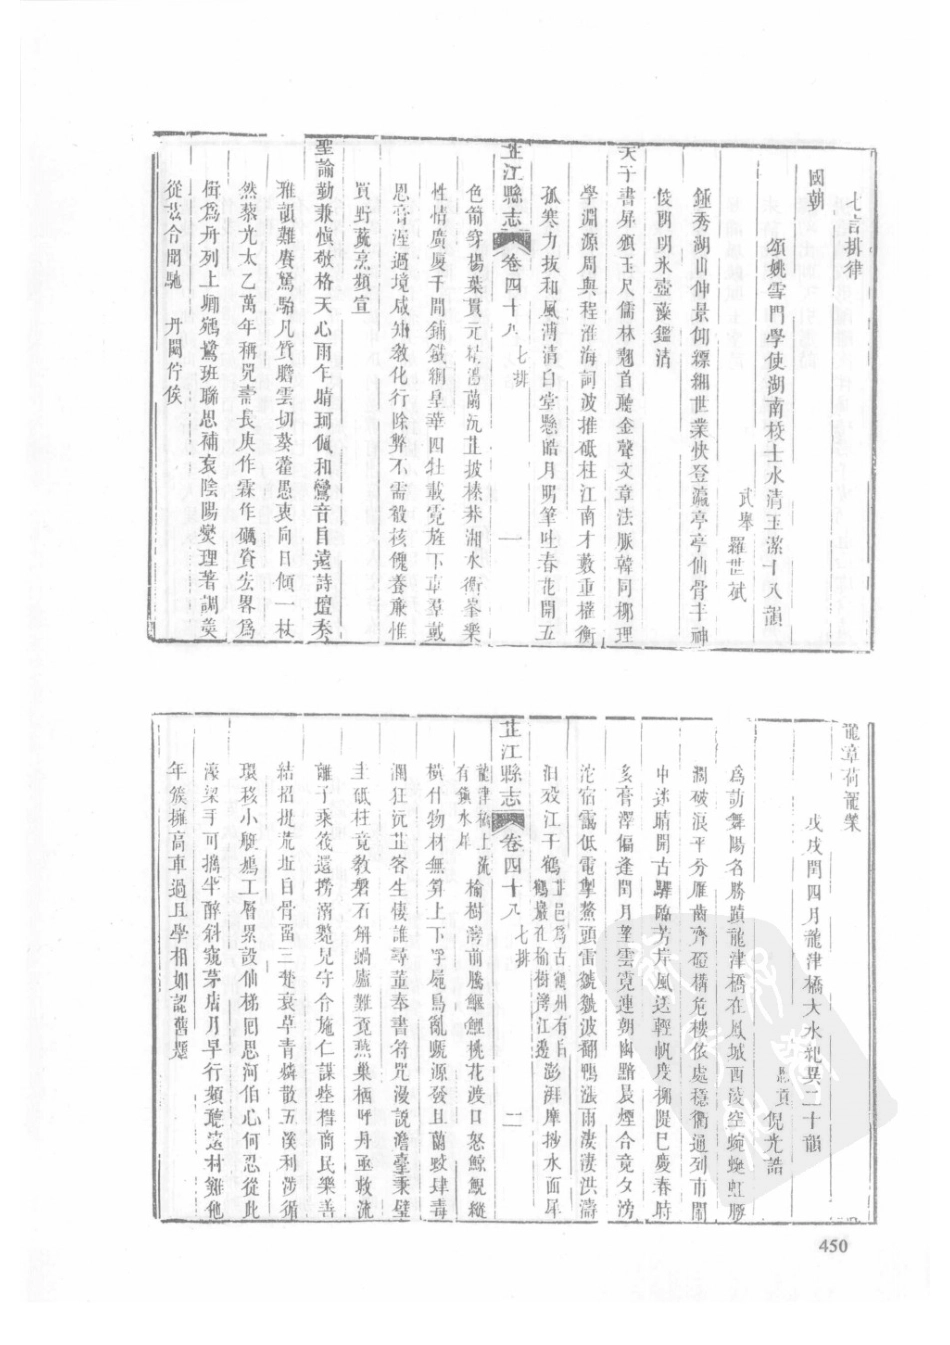 七言排律
國朝
頌姚雪門學使湖南校士水清玉潔十八韻
武舉羅世斌
鍾秀湖山仲景仰縹緗世業快登瀛亭亭仙骨丰神
俊朗朗氷壺藻鑑清
天子書屏頒玉尺儒林翹首聽金聲文章法脈韓同柳理
學淵源周與程淮海詞波推砥柱江南才藪重權衡
孤寒力拔和風溥清白堂懸皓月明筆吐春花開五
芷江縣志 卷四十八 七排 一
色箭穿楊葉貫元精澧蘭沅芷披榛莽湘水衡峯樂
性情廣厦千間鋪錦綱皇華四牡載霓旌下車羣戴
恩膏渥過境咸知敎化行除弊不需殽核傀養廉惟
買野蔬烹頻宣
聖諭勤兼愼敬格天心雨乍晴珂佩和鸞音自遠詩壇奏
雅韻難賡駑駘凡質瞻雲切葵藿愚衷向日傾一杖
然藜光太乙萬年稱兕壽長庚作霖作礪資宏畧爲
楫爲舟列上卿鵷鷺班聯思補袞陰陽燮理著調羹
從茲合聞馳 丹闕佇俟
龍章荷寵榮
戊戌閏四月龍津橋大水紀異二十韻
恩貢倪光誥
爲訪舞陽名勝蹟龍津橋在鳳城西凌空蜿蜒虹勝
澗破浪平分雁齒齊磴構危樓依處穩衢通列市鬧
中迷晴開古驛臨芳岸風送輕帆度柳隄巳慶春時
多膏澤偏逢閏月望雲霓連朝幽黯晨煙合竟夕滂
沱宿靄低電掣鰲頭雷虩虩波翻鴨漲雨淒淒洪濤
汨歿江干鶴 芷邑爲古鶴州有白鶴巖在榆樹灣江邊 澎湃摩挲水面犀
芷江縣志 卷四十八 七排 二
龍津橋上流有鎮水犀 榆樹灣前騰鱷鯉桃花渡口怒鯨鯢縱
橫什物材無算上下浮屍鳥亂嘶源發且蘭蛟肆毒
瀾狂沅芷客生悽誰尋董奉書符咒漫說澹臺秉璧
圭砥柱竟敎磐石解蝸廬難覔燕巢栖呼丹亟救流
離子乘筏還撈溺斃兒守合施仁謀些榰商民樂善
結招提荒坵白骨畱三楚衰草青燐散五溪利涉循
環移小艇鳩工層累設仙梯囘思河伯心何忍從此
濠梁手可攜半醉斜窺茅店月早行頻聽遠村雞他
年簇擁高車過且學相如認舊題
450